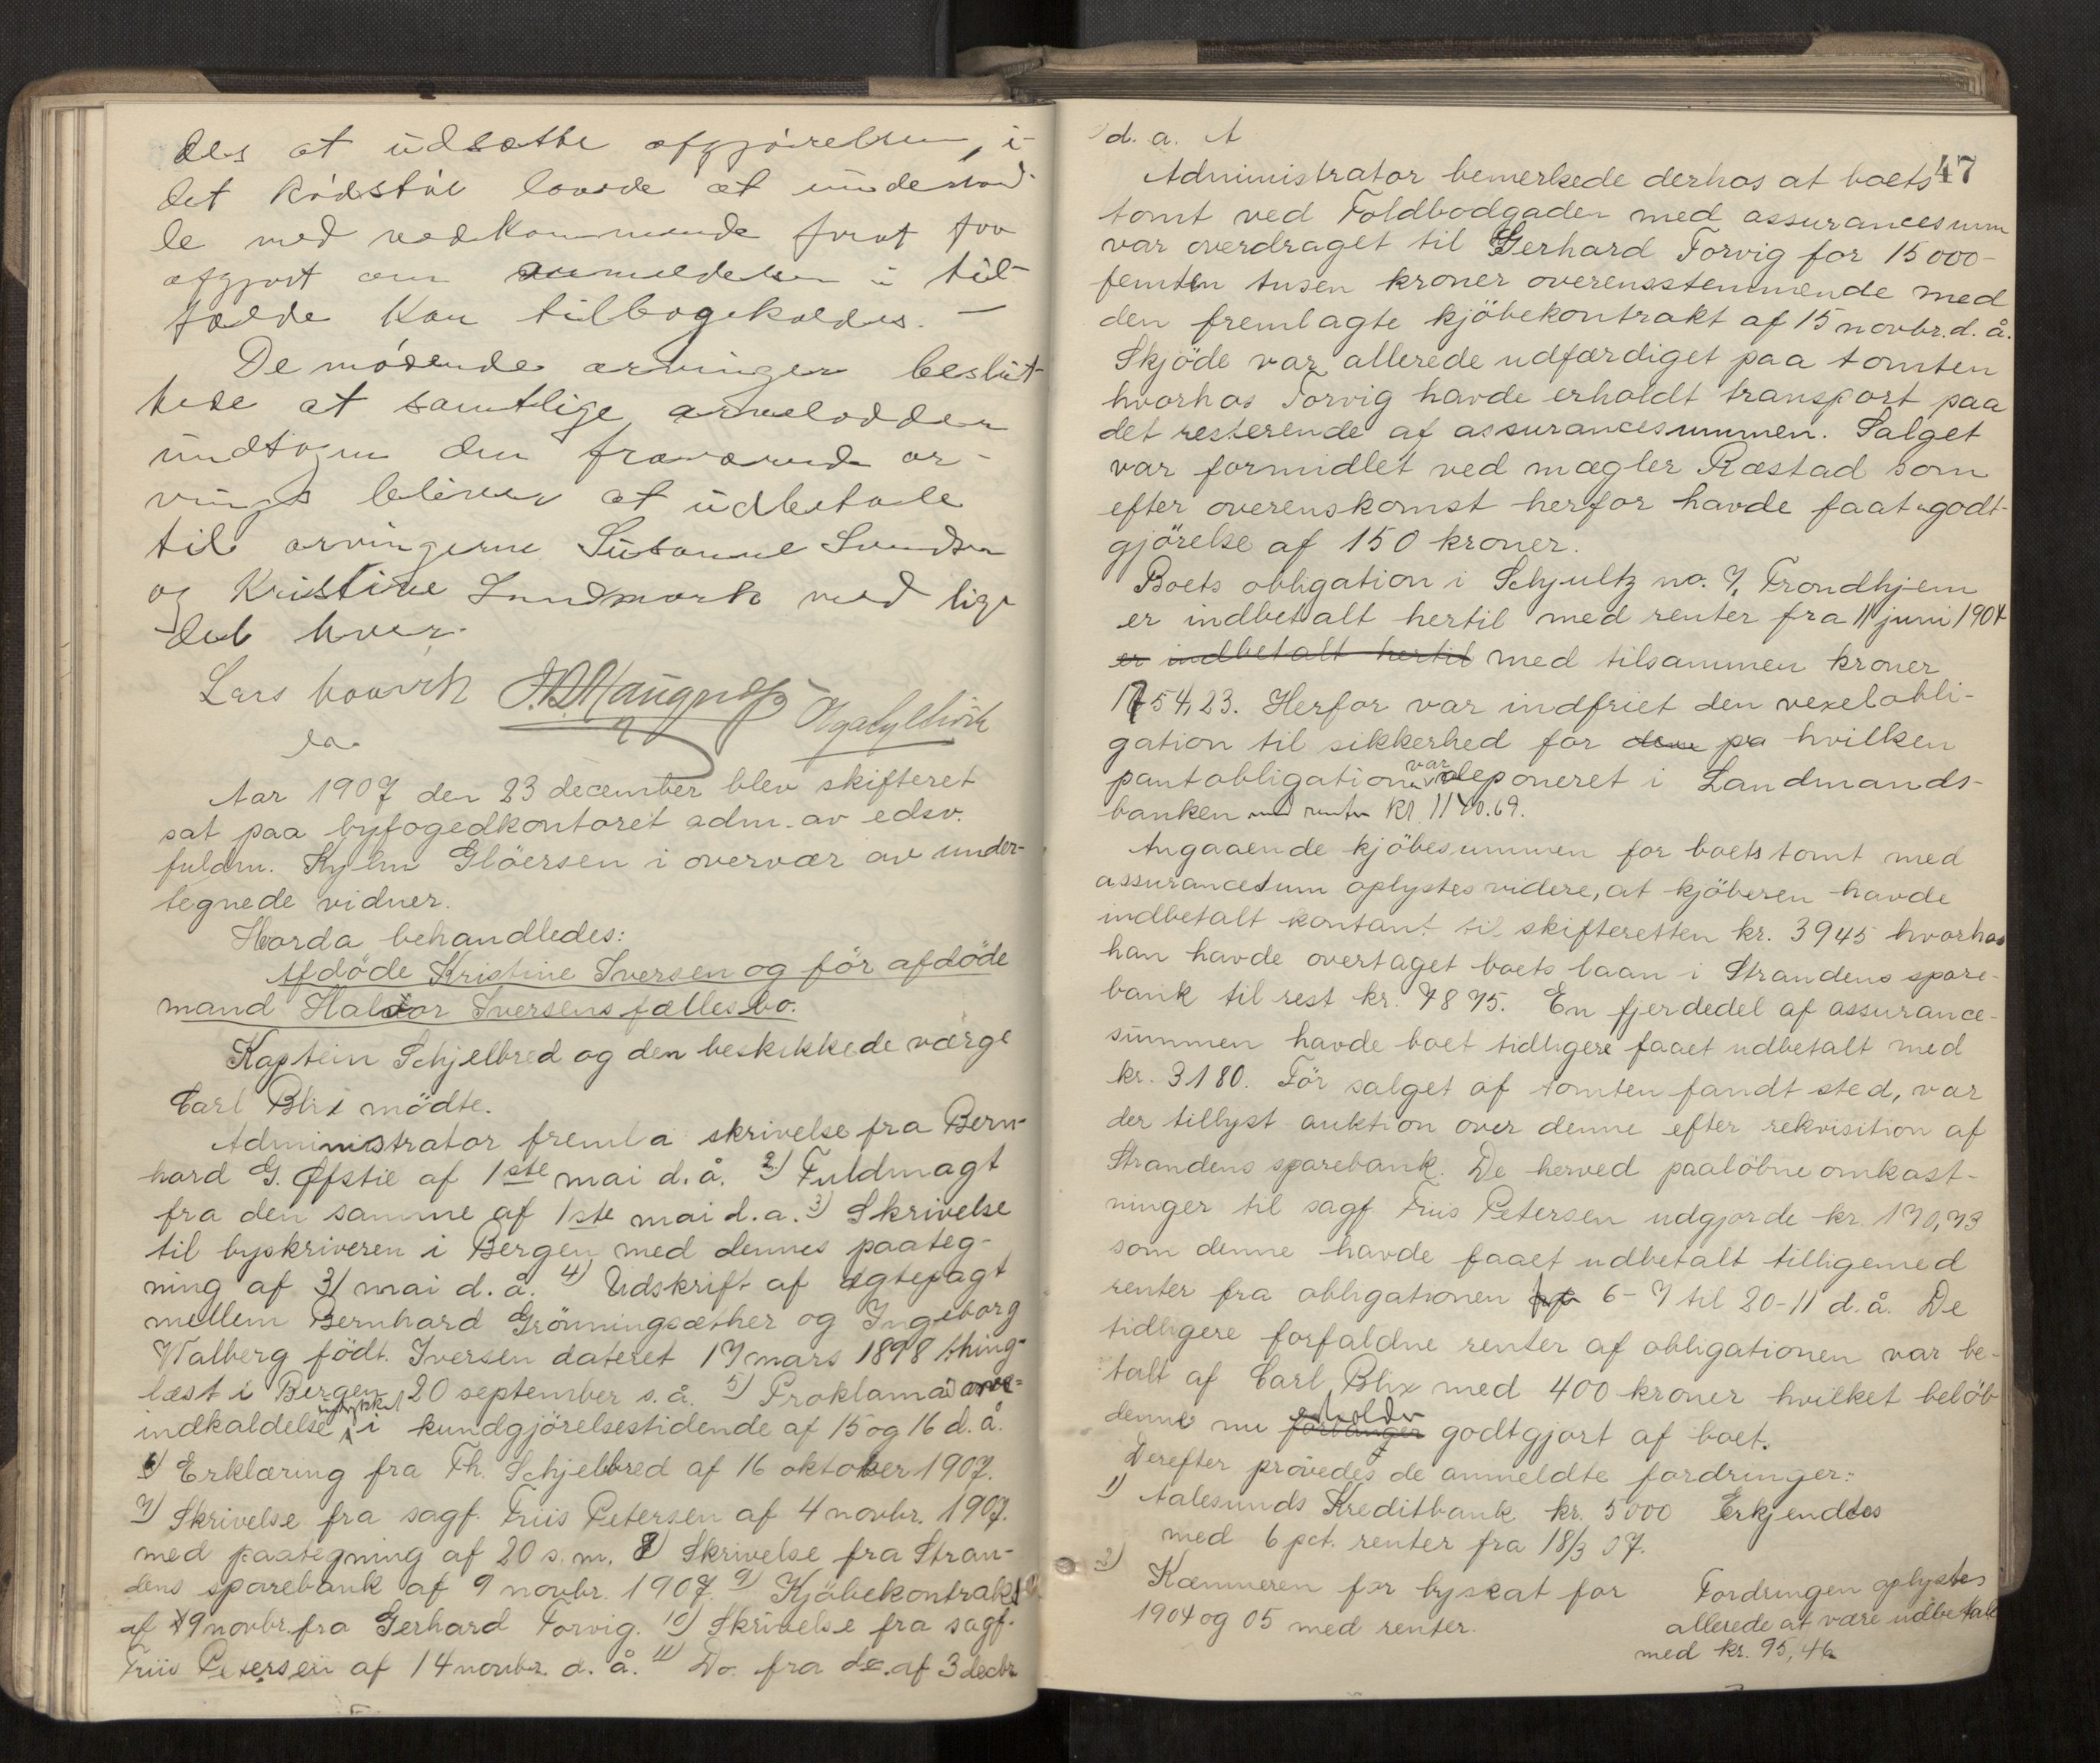 des at udsætte afgjörelsen, i-
det Rödstöl lovede at underhand-
le med vedkommende forat faa
afgjort om anmeldelsen i til-
fælde kan tilbagekaldes. —
De mödende arvinger beslut-
tede at samtlige arvelodder
undtagen den fraværende ar-
vings bliver at udbetale
til arvingerne Susanne Svendsen
og Kristine Landmark med lige
del hver.
Lars
Aar 1907 den 23 december blev skifteret
sat paa byfogedkontoret adm. av edsv.
fuldm. Hjelm Glöersen i overvær av under-
tegnede vidner.
Hvorda behandledes:
Afdöde Kristine Iversen og för afdöde
mand Haldor Iversens fællesbo.
Kaptein Schjelbred og den beskikkede værge
Carl Blix mödte.
Administrator fremla skrivelse fra Bern-
hard G. Øfstie af 1ste mai d. å. 2) Fuldmagt
fra den samme af 1ste mai d. a. 3) Skrivelse
til byskriveren i Bergen med dennes paateg-
ning af 31 mai d. å. 4) Udskrift af ægtepagt
mellem Bernhard Grönningsæther og Ingeborg
Walberg födt. Iversen dateret 17 mars 1898 thing-
læst i Bergen 20 september s. å. 5) Proklama
indkaldelse indrykket i kundgjörelsestidende af 15 og 16 d. å.
6) Erklæring fra Th. Schjelbred af 16 oktober 1907.
7) Skrivelse fra sagf. Friis Petersen af 4 novbr. 1907.
med paategning af 20 s. m. 8) Skrivelse fra Stran-
dens sparebank af 9 novbr. 1907. 9) Kjöbekontrakt
af 19 novbr. fra Gerhard Torvig. 10) Skrivelse fra sagf.
Friis Petersen af 14 novbr. d. å. 11) Do. fra do. af 3 decbr
d. a.
47
Administrator bemerkede derhos at boets
tomt ved Toldbodgaden med assurancesum
var overdraget til Gerhard Torvig for 15000-
femten tusen kroner overensstemmende med
den fremlagte kjöbekontrakt af 15 novbr. d. å.
Skjöde var allerede udfærdiget paa tomten
hvorhos Torvig havde erholdt transport paa
det resterende af assurancesummen. Salget
var formidlet ved mægler Ræstad som
efter overenskomst herfor havde faat godt-
gjörelse af 150 kroner.
Boets obligation i Schjultz no. 7, Trondhjem
er indbetalt hertil med renter fra 11 juni 1904
er indbetalt hertil med tilsammen kroner
1754,23. Herfor var indfriet den vexelobli-
gation til sikkerhed for hvilken
pantobligationen var deponeret i Landmands-
banken med renter kr. 1140.69.
Angaaende kjöbesummen for boets tomt med
assurancesum oplystes videre, at kjöberen havde
indbetalt kontant til skifteretten kr. 3945 hvorhos
han havde overtaget boets laan i Strandens spare-
bank til rest kr. 7875. En fjerdedel af assurance-
summen havde boet tidligere faaet udbetalt med
kr. 3180. För salget af tomten fandt sted, var
der tillyst auktion over denne efter rekvisition af
Strandens sparebank. De herved paalöbne omkost-
ninger til sagf Friis Petersen udgjorde kr. 170,73
som denne havde faaet udbetalt tilligemed
renter fra obligationen 6-7 til 20-11 d. å. De
tidligere forfaldne renter af obligationen var be-
talt af Carl Blix med 400 kroner hvilket belöb
denne nu forlanger erholder godtgjort af boet.
Derefter prövedes de anmeldte fordringer:
1) Aalesunds Kreditbank kr. 5000 Erkjendtes
med 6 pct. renter fra 18/3 07.
2) Kæmneren for byskat for Fordringen oplystes
1904 og 05 med renter. allerede at være udbetalt
med kr. 95,46